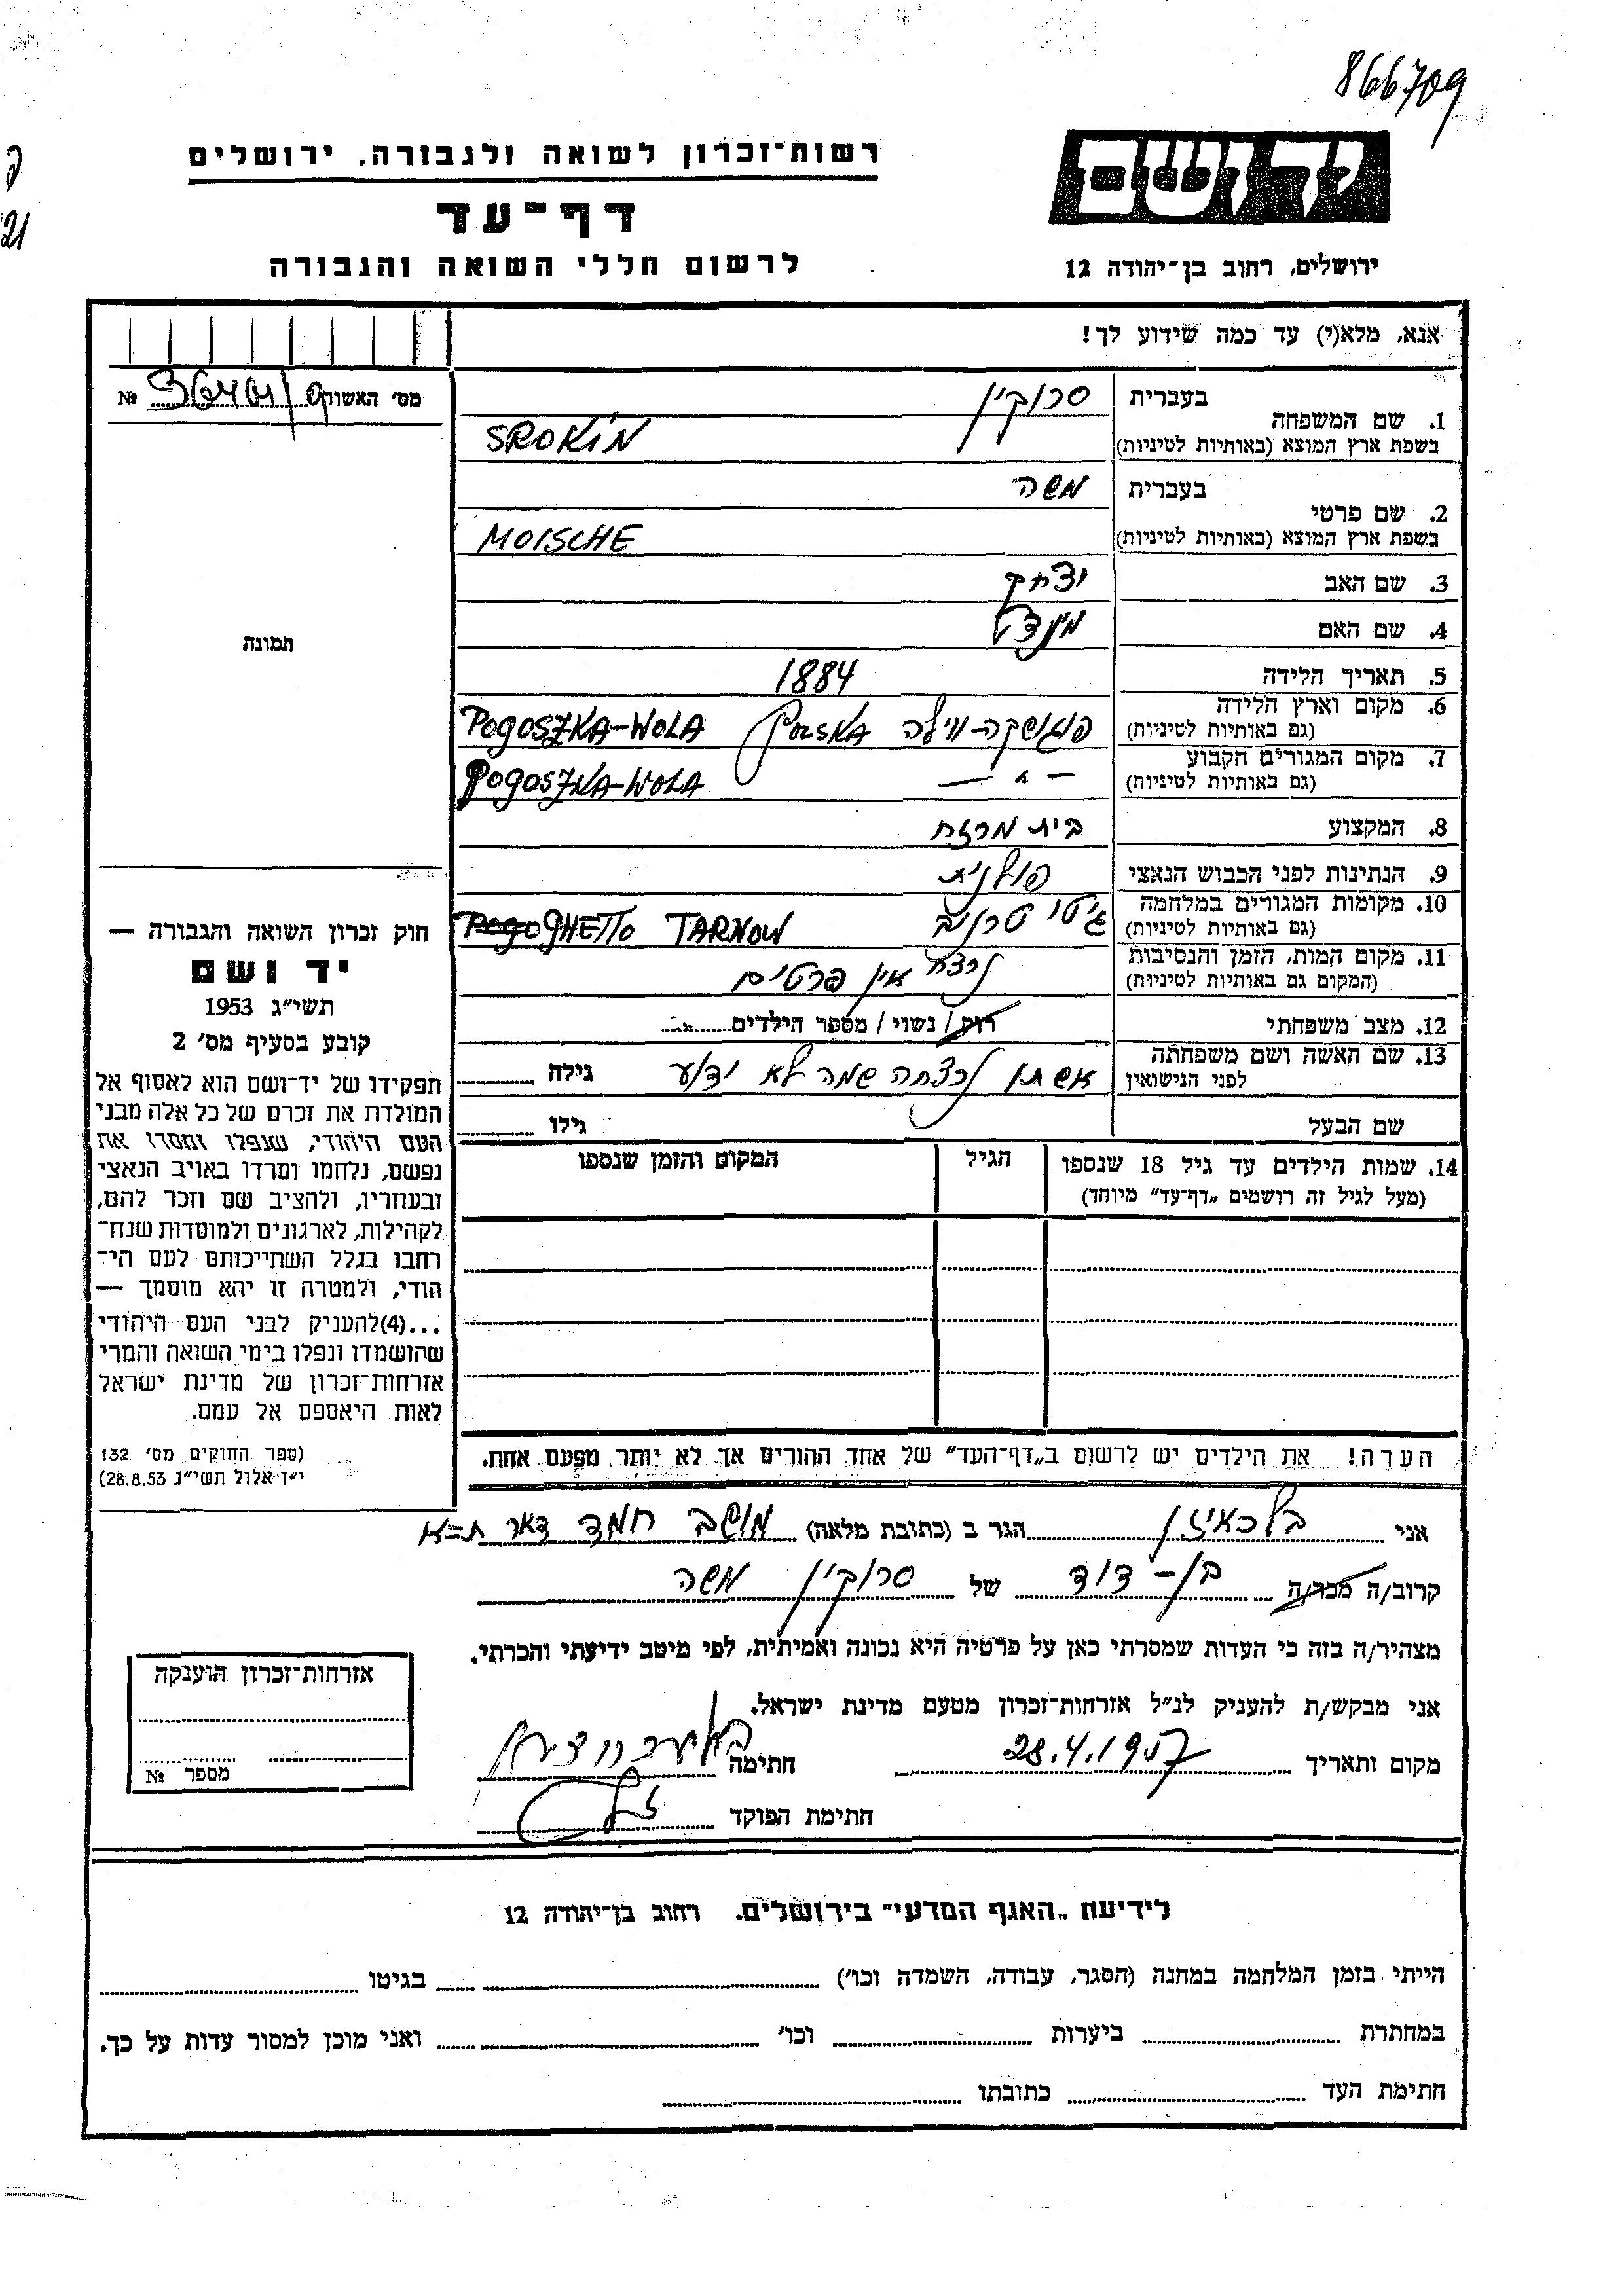 866709
יד ושם
רשות־זכרון לשואה ולגבורה, ירושלים
דף־עד
לרשום חללי השואה והגבורה
ירושלים, רחוב בן־יהודה 12
אנא, מלא(י) עד כמה שידוע לך!
מס׳ האשור №
1. שם המשפחה בעברית סרוקין
בשפת ארץ המוצא (באותיות לטיניות) SROKIN
2. שם פרטי בעברית משה
בשפת ארץ המוצא (באותיות לטיניות) MOISCHE
3. שם האב יצחק
4. שם האם
5. תאריך הלידה 1884
6. מקום וארץ הלידה (גם באותיות לטיניות) פוגושקה-וולה POLSKA POGOSZKA-WOLA
7. מקום המגורים הקבוע (גם באותיות לטיניות) — " — POGOSZKA-WOLA
8. המקצוע בית מרזח
9. הנתינות לפני הכבוש הנאצי פולנית
10. מקומות המגורים במלחמה (גם באותיות לטיניות) גיטו טרנוב GHETTO TARNOW
11. מקום המות, הזמן והנסיבות (המקום גם באותיות לטיניות) נרצח אין פרטים
12. מצב משפחתי רווק / נשוי / מספר הילדים
13. שם האשה ושם משפחתה לפני הנישואין אשתו נרצחה שמה לא ידוע גילה
שם הבעל גילו
14. שמות הילדים עד גיל 18 שנספו הגיל המקום והזמן שנספו
(מעל לגיל זה רושמים „דף־עד” מיוחד)
הערה! את הילדים יש לרשום ב„דף־העד” של אחד ההורים אך לא יותר מפעם אחת.
תמונה
חוק זכרון השואה והגבורה —
יד ושם
תשי״ג 1953
קובע בסעיף מס׳ 2
תפקידו של יד־ושם הוא לאסוף אל
המולדת את זכרם של כל אלה מבני
העם היהודי, שנפלו ומסרו את
נפשם, נלחמו ומרדו באויב הנאצי
ובעוזריו, ולהציב שם וזכר להם,
לקהילות, לארגונים ולמוסדות שנח־
רחבו בגלל השתייכותם לעם הי־
הודי, ולמטרה זו יהא מוסמך —
...(4)להעניק לבני העם היהודי
שהושמדו ונפלו בימי השואה והמרי
אזרחות־זכרון של מדינת ישראל
לאות היאספם אל עמם.
(ספר החוקים מס׳ 132
י״ז אלול תשי״ג 28.8.53)
אני הגר ב (כתובת מלאה) מושב חמד דאר ת=א
קרוב/ה מכר/ה בן-דוד של סרוקין משה
מצהיר/ה בזה כי העדות שמסרתי כאן על פרטיה היא נכונה ואמיתית, לפי מיטב ידיעתי והכרתי.
אני מבקש/ת להעניק לנ״ל אזרחות־זכרון מטעם מדינת ישראל.
מקום ותאריך 28.4.1957 חתימה
חתימת הפוקד
אזרחות־זכרון הוענקה
מספר №
לידיעת „האגף המדעי” בירושלים. רחוב בן־יהודה 12
הייתי בזמן המלחמה במחנה (הסגר, עבודה, השמדה וכו׳) בגיטו
במחתרת ביערות וכו׳ ואני מוכן למסור עדות על כך.
חתימת העד כתובתו